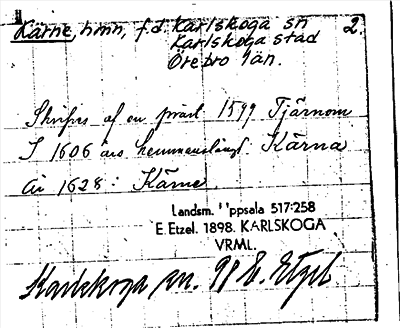 Kärne, hmn, f.d. Karlskoga sn 2.
Karlskoga stad
Örebro län.
Skrifves af en präst 1599 Tjärnom
I 1606 års hemmanslängd: Kärna
År 1628: Kärne
Landsm. Uppsala 517:258
E. Etzel. 1898. KARLSKOGA
VRML.
Karlskoga sn. 98 E. Etzel